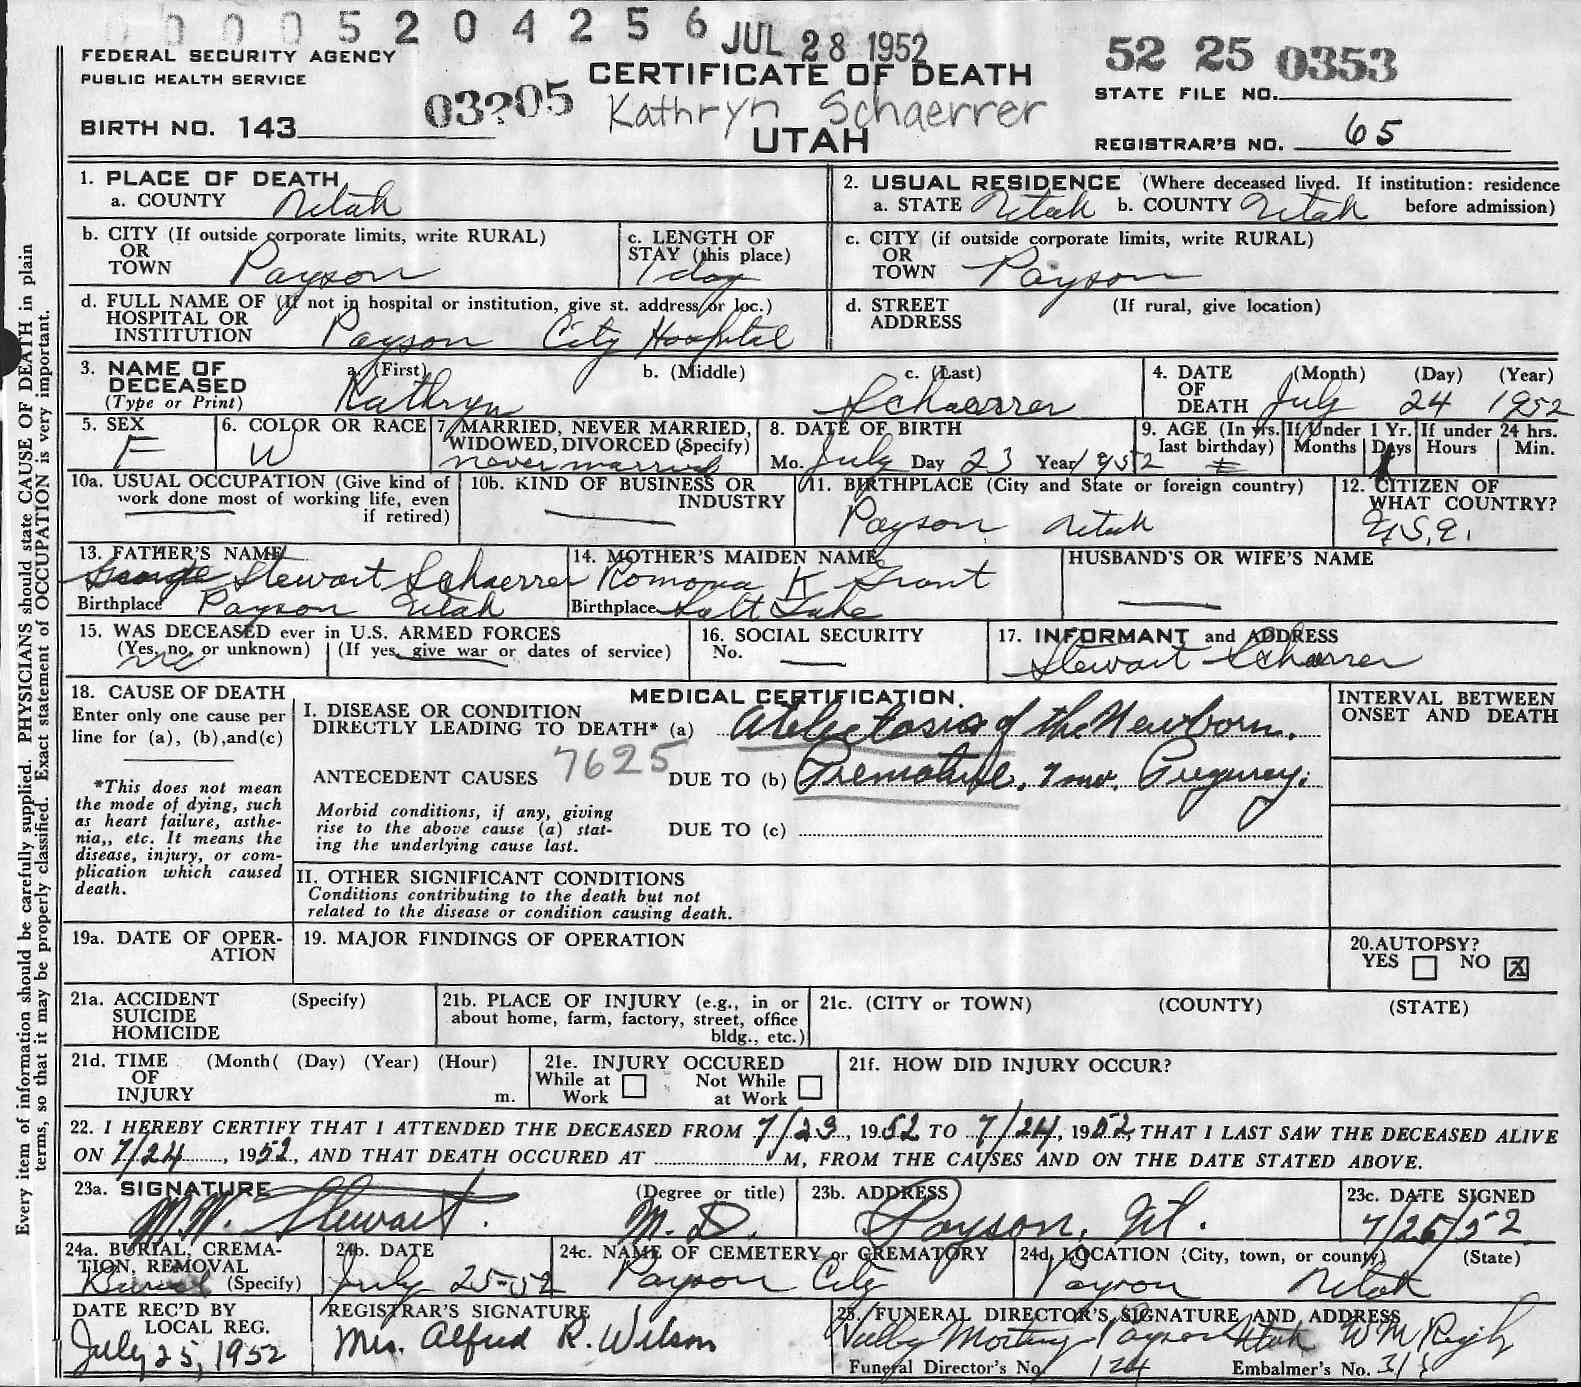 0 0 0 0 5 2 0 4 2 5 6 JUL 28 1952
52 25 0353
FEDERAL SECURITY AGENCY
PUBLIC HEALTH SERVICE
CERTIFICATE OF DEATH
STATE FILE NO.
03205 Kathryn Schaerrer
BIRTH NO. 143
UTAH
REGISTRAR'S NO. 65
Every item of information should be carefully supplied. PHYSICIANS should state CAUSE OF DEATH in plain
terms, so that it may be properly classified. Exact statement of OCCUPATION is very important.
1. PLACE OF DEATH
a. COUNTY Utah
2. USUAL RESIDENCE (Where deceased lived. If institution: residence
a. STATE Utah b. COUNTY Utah before admission)
b. CITY (If outside corporate limits, write RURAL)
OR
TOWN Payson
c. LENGTH OF
STAY (this place)
1 day
c. CITY (if outside corporate limits, write RURAL)
OR
TOWN Payson
d. FULL NAME OF (If not in hospital or institution, give st. address or loc.)
HOSPITAL OR
INSTITUTION Payson City Hospital
d. STREET (If rural, give location)
ADDRESS
3. NAME OF
DECEASED
(Type or Print)
a. (First) b. (Middle) c. (Last)
Kathryn Schaerrer
4. DATE (Month) (Day) (Year)
OF
DEATH July 24 1952
5. SEX
F
6. COLOR OR RACE
W
7. MARRIED, NEVER MARRIED,
WIDOWED, DIVORCED (Specify)
never married
8. DATE OF BIRTH
Mo. July Day 23 Year 1952
9. AGE (In yrs.
last birthday)
If Under 1 Yr.
Months Days
1
If under 24 hrs.
Hours Min.
10a. USUAL OCCUPATION (Give kind of
work done most of working life, even
if retired)
10b. KIND OF BUSINESS OR
INDUSTRY
11. BIRTHPLACE (City and State or foreign country)
Payson Utah
12. CITIZEN OF
WHAT COUNTRY?
U.S.A.
13. FATHER'S NAME
George Stewart Schaerrer
Birthplace Payson Utah
14. MOTHER'S MAIDEN NAME
Romona K Grant
Birthplace Salt Lake
HUSBAND'S OR WIFE'S NAME
15. WAS DECEASED ever in U.S. ARMED FORCES
(Yes, no, or unknown) (If yes, give war or dates of service)
no
16. SOCIAL SECURITY
No.
17. INFORMANT and ADDRESS
Stewart Schaerrer
18. CAUSE OF DEATH
Enter only one cause per
line for (a), (b), and (c)
*This does not mean
the mode of dying, such
as heart failure, asthe-
nia,, etc. It means the
disease, injury, or com-
plication which caused
death.
MEDICAL CERTIFICATION.
I. DISEASE OR CONDITION
DIRECTLY LEADING TO DEATH* (a) Atelectasis of the Newborn.
ANTECEDENT CAUSES 7625 DUE TO (b) Premature, 7 mo. Pregnancy.
Morbid conditions, if any, giving
rise to the above cause (a) stat-
ing the underlying cause last.
DUE TO (c)
INTERVAL BETWEEN
ONSET AND DEATH
II. OTHER SIGNIFICANT CONDITIONS
Conditions contributing to the death but not
related to the disease or condition causing death.
19a. DATE OF OPER-
ATION
19. MAJOR FINDINGS OF OPERATION
20. AUTOPSY?
YES NO X
21a. ACCIDENT (Specify)
SUICIDE
HOMICIDE
21b. PLACE OF INJURY (e.g., in or
about home, farm, factory, street, office
bldg., etc.)
21c. (CITY or TOWN) (COUNTY) (STATE)
21d. TIME (Month( (Day) (Year) (Hour)
OF
INJURY m.
21e. INJURY OCCURED
While at Work Not While at Work
21f. HOW DID INJURY OCCUR?
22. I HEREBY CERTIFY THAT I ATTENDED THE DECEASED FROM 7/23, 1952 TO 7/24, 1952, THAT I LAST SAW THE DECEASED ALIVE
ON 7/24, 1952, AND THAT DEATH OCCURED AT M, FROM THE CAUSES AND ON THE DATE STATED ABOVE.
23a. SIGNATURE (Degree or title)
M.W. Stewart. M.D.
23b. ADDRESS
Payson, Ut.
23c. DATE SIGNED
7/25/52
24a. BURIAL, CREMA-
TION, REMOVAL
Burial (Specify)
24b. DATE
July 25-52
24c. NAME OF CEMETERY or CREMATORY
Payson City
24d. LOCATION (City, town, or county) (State)
Payson Utah
DATE REC'D BY
LOCAL REG.
July 25, 1952
REGISTRAR'S SIGNATURE
Mrs. Alfred R. Wilson
25. FUNERAL DIRECTOR'S SIGNATURE AND ADDRESS
Payson Utah
Funeral Director's No. 124 Embalmer's No.